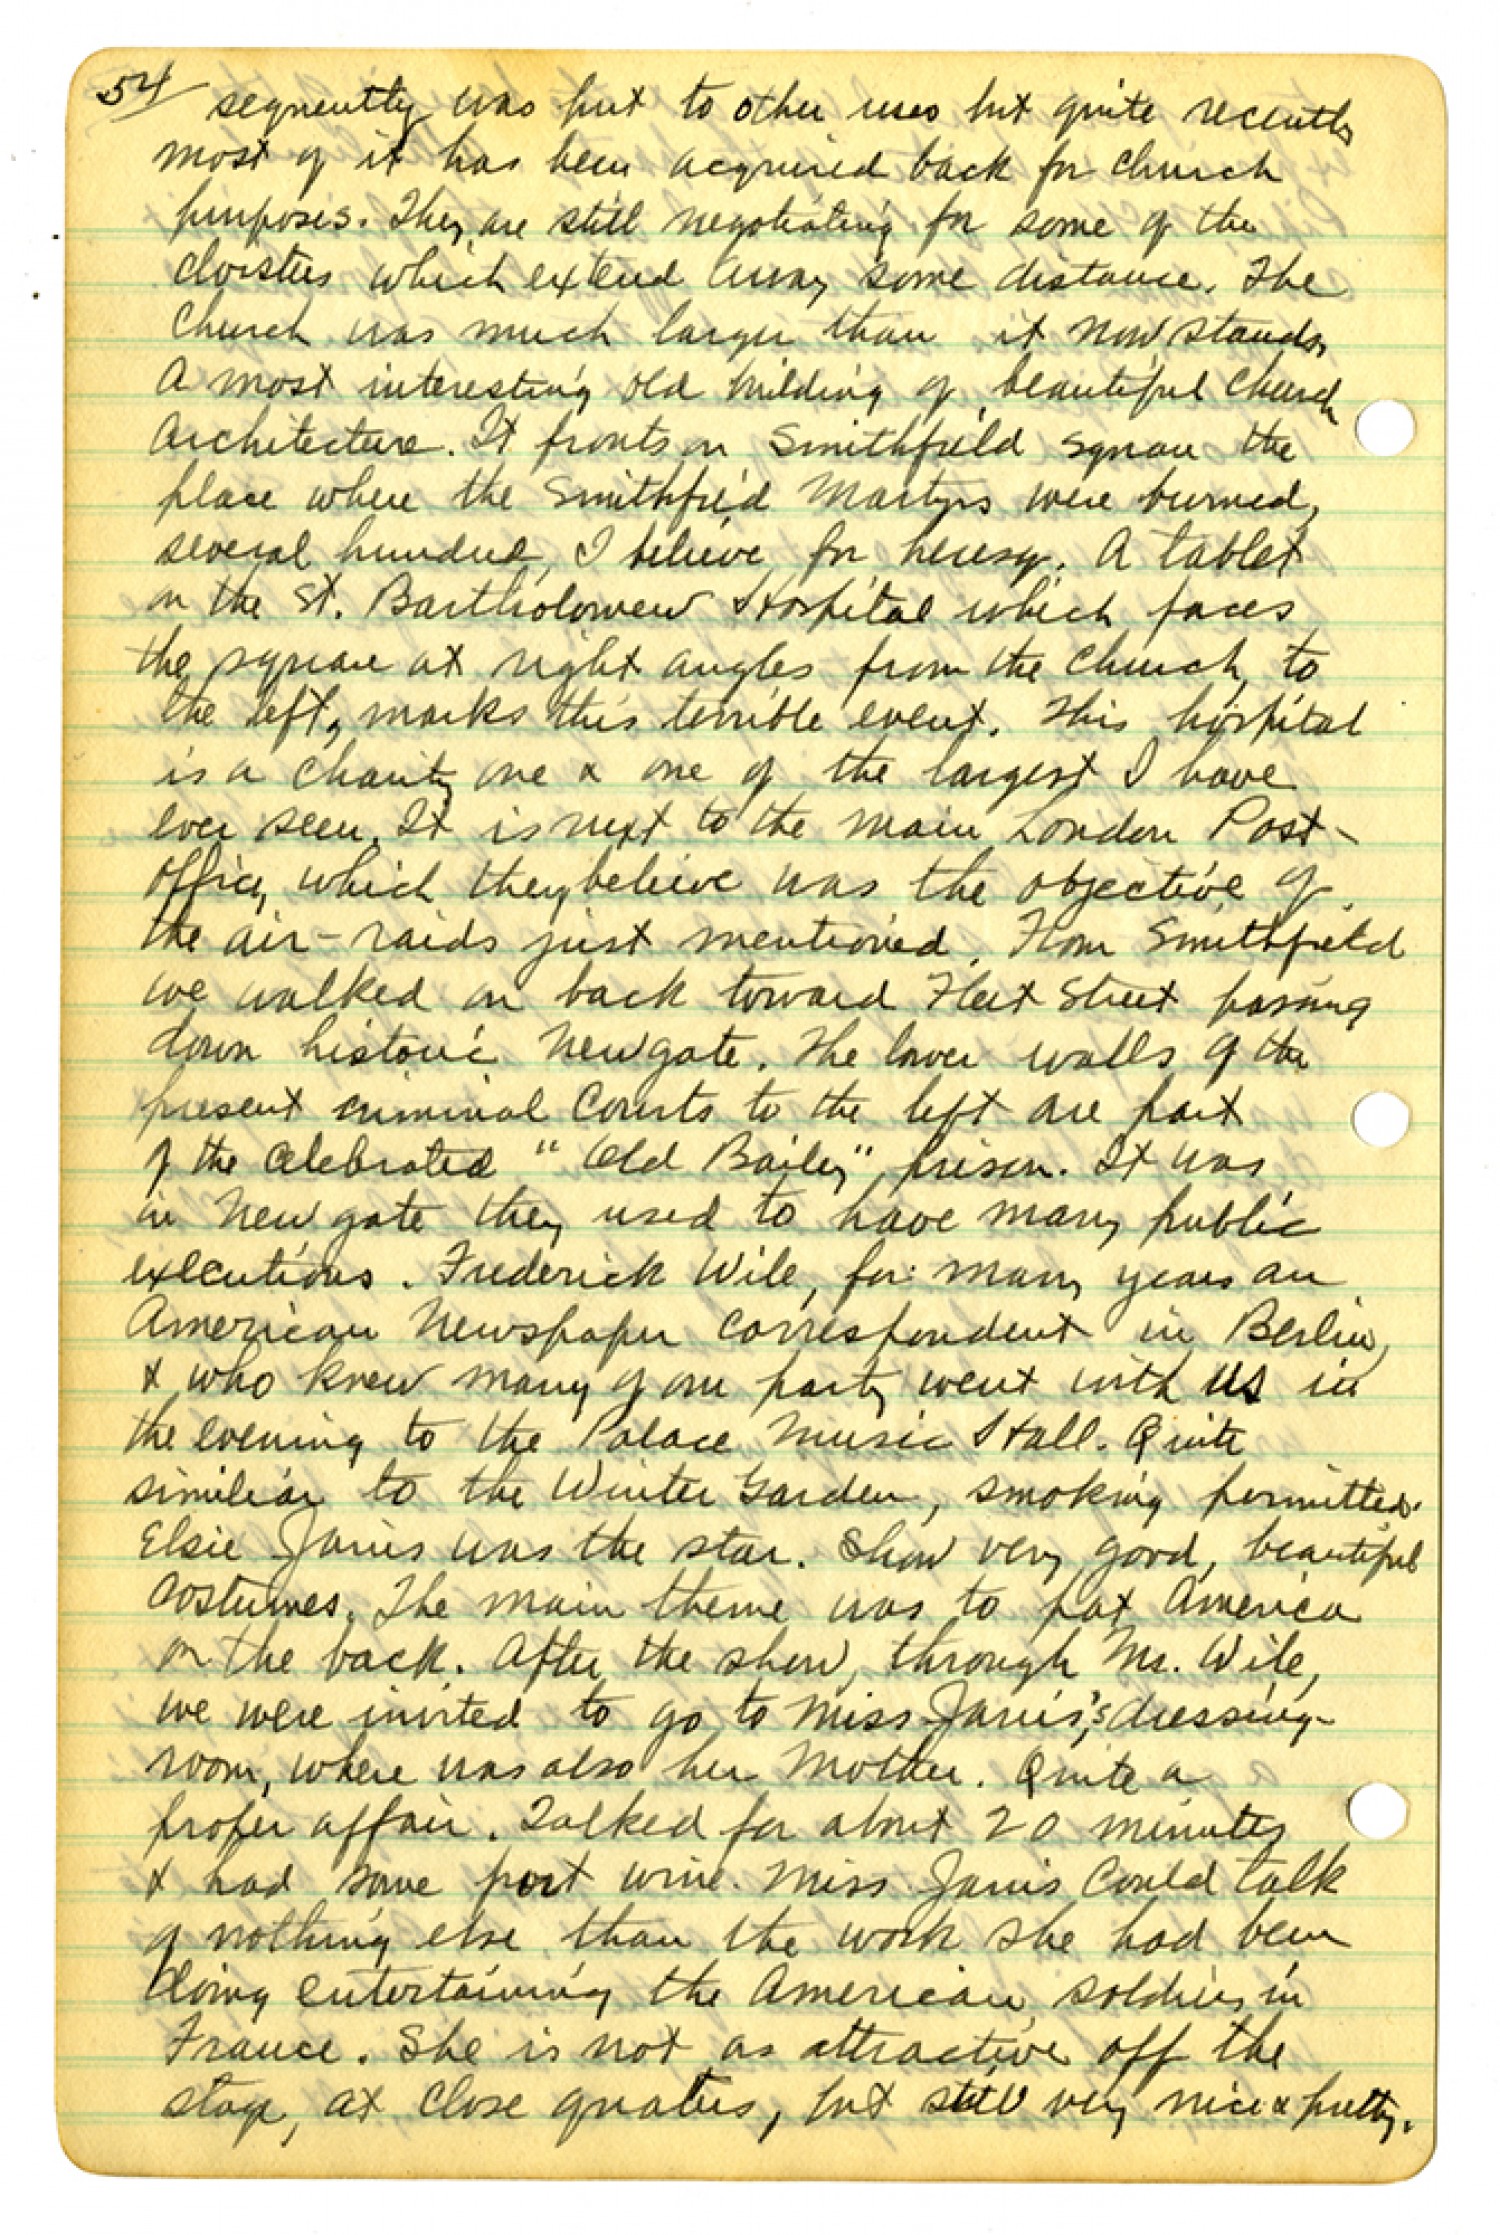 54/ sequently was put to other uses but quite recently
most of it has been acquired back for church
purposes. They are still negotiating for some of the
cloisters which extend away some distance. The
Church was much larger than it now stands,
A most interesting old building of beautiful Church
Architecture. It fronts on Smithfield Square the
place where the Smithfield Martyrs were burned,
several hundred, I believe, for heresy. A tablet
on the St. Bartholomew Hospital which faces
the square at right angles from the church, to
the left, marks this terrible event. This hospital
is a charity one & one of the largest I have
ever seen. It is next to the main London Post-
Office, which they believe was the objective of
the air-raids just mentioned. From Smithfield
we walked on back toward Fleet Street passing
down historic Newgate. The lower walls of the
present criminal Courts to the left are part
of the celebrated "Old Bailey" prison. It was
in Newgate they used to have many public
executions. Frederick Wile, for many years an
American Newspaper correspondent in Berlin,
& who knew many of our party went with us in
the evening to the Palace Music Hall. Quite
similiar to the Winter Garden, smoking permitted.
Elsie Janis was the star. Show very good, beautiful
costumes. The main theme was to pat America
on the back. After the show, through Mr. Wile,
we were invited to go to Miss Janis's dressing-
room, where was also her Mother. Quite a
proper affair. Talked for about 20 minutes
& had some port wine. Miss Janis could talk
of nothing else than the work she had been
doing entertaining the American soldiers in
France. She is not as attractive off the
stage, at close quaters, but still very nice & pretty.